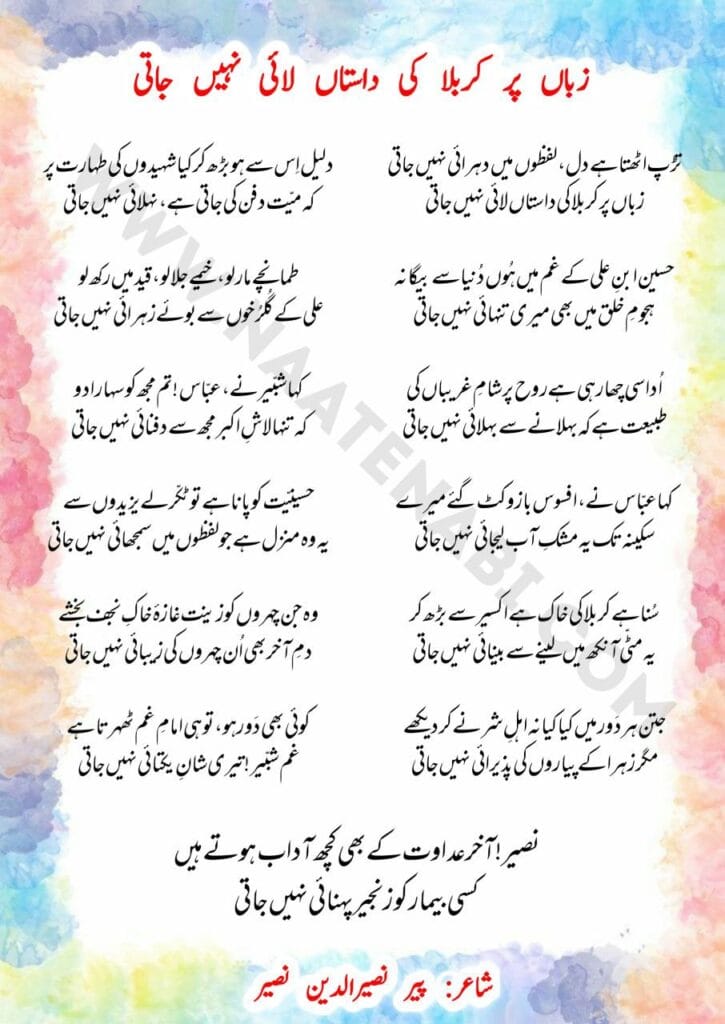 زباں پر کربلا کی داستاں لائی نہیں جاتی
تڑپ اٹھتا ہے دل، لفظوں میں دہرائی نہیں جاتی
زباں پر کربلا کی داستاں لائی نہیں جاتی
حسین ابنِ علی کے غم میں ہُوں دُنیا سے بیگانہ
ہجومِ خلق میں بھی میری تنہائی نہیں جاتی
اُداسی چھا رہی ہے روح پر شامِ غریباں کی
طبیعت ہے کہ بہلانے سے بہلائی نہیں جاتی
کہا عبّاس نے، افسوس بازو کٹ گئے میرے
سکینہ تک یہ مشکِ آب لیجائی نہیں جاتی
سُنا ہے کربلا کی خاک ہے اکسیر سے بڑھ کر
یہ مٹّی آنکھ میں لینے سے بینائی نہیں جاتی
جتن ہر دَور میں کیا کیا نہ اہلِ شر نے کر دیکھے
مگر زہرا کے پیاروں کی پذیرائی نہیں جاتی
دلیل اِس سے ہو بڑھ کر کیا شہیدوں کی طہارت پر
کہ میّت دفن کی جاتی ہے، نہلائی نہیں جاتی
طمانچے مار لو، خیمے جلا لو، قید میں رکھ لو
علی کے گُلرُخوں سے بوئے زہرائی نہیں جاتی
کہا شبّیر نے، عبّاس! تم مجھ کو سہارا دو
کہ تنہا لاشِ اکبر مجھ سے دفنائی نہیں جاتی
حسینیّت کو پانا ہے تو ٹکّر لے یزیدوں سے
یہ وہ منزل ہے جو لفظوں میں سمجھائی نہیں جاتی
وہ جن چہروں کو زینت غازۂ خاکِ نجف بخشے
دمِ آخر بھی اُن چہروں کی زیبائی نہیں جاتی
کوئی بھی دَور ہو، تو ہی امامِ غم ٹھہرتا ہے
غمِ شبّیر! تیری شانِ یکتائی نہیں جاتی
نصیر! آخر عداوت کے بھی کچھ آداب ہوتے ہیں
کسی بیمار کو زنجیر پہنائی نہیں جاتی
شاعر: پیر نصیرالدین نصیر
WWW.NAATENABI.COM